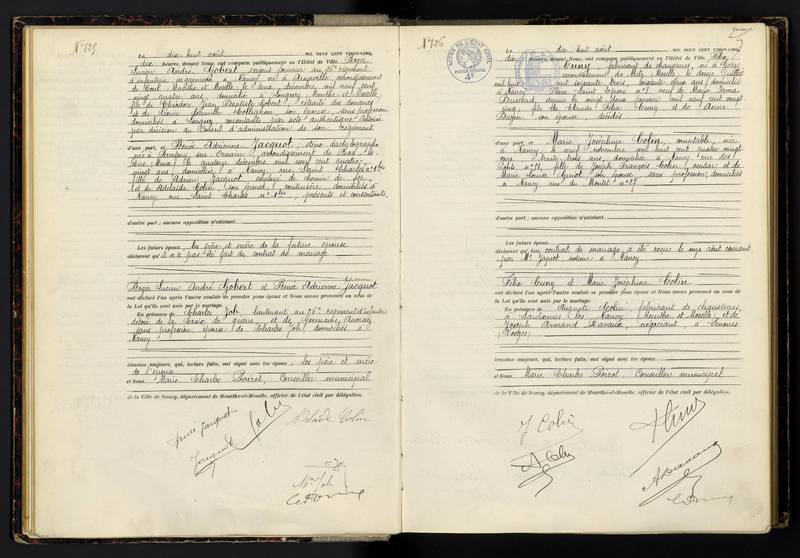 N° 825
Le dix huit août MIL NEUF CENT VINGT-CINQ,
dix heures, devant Nous, ont comparu publiquement en l'Hôtel de Ville Roger
Lucien André Gobert, sergent fourrier au 26e régiment
d'infanterie en garnison à Nancy, né à arrondissement
de Toul, Meurthe et Moselle, le deux décembre, mil neuf cent,
vingt quatre ans, domicilié à Longwy, Meurthe et Moselle,
fils de Jean Baptiste Gobert, retraité des douanes
et de Léonie Camille Collignon, son épouse, sans profession
domiciliés à Longwy, consentants par acte authentique. Autorisé
par décision du Conseil d'administration de son régiment
d'une part, et Renée Adrienne Jacquot, sténo dactylographe,
née à Revigny sur Ornain, arrondissement de Bar le
Duc, Meuse, le quatre décembre mil neuf cent quatre,
vingt ans, domiciliée à Nancy, rue Saint Charles n° 1 bis
fille de Adrien Jacquot, employé de chemin de fer
et de Adelaïde Colin, son épouse, couturière, domiciliés à
Nancy, rue Saint Charles n° 1 bis, présents et consentants.
d'autre part ; aucune opposition n'existant
Les futurs époux, les père et mère de la future épouse
déclarent qu'il n'a pas été fait de contrat de mariage
Roger Lucien André Gobert et Renée Adrienne Jacquot
ont déclaré l'un après l'autre vouloir se prendre pour époux et Nous avons prononcé au nom de
la Loi qu'ils sont unis par le mariage.
En présence de Charles Job, lieutenant au 26e régiment d'infanterie
décoré de la Croix de guerre, et de Germaine
sans profession, épouse de Charles Job, domiciliés à
Nancy
témoins majeurs, qui, lecture faite, ont signé avec les époux, les père et mère
de l'épouse
et Nous, Marie Charles Poirot, Conseiller municipal
de la Ville de Nancy, département de Meurthe-et-Moselle, officier de l'état civil par délégation.
Renée Jacquot
Jacquot
Adelaïde Colin
Mme Job
N° 826
ACTES DE L'ÉTAT CIVIL
PAPIER SPÉCIAL
Le dix huit août MIL NEUF CENT VINGT-CINQ,
dix heures, devant Nous, ont comparu publiquement en l'Hôtel de Ville Félix
Cuny, fabricant de chaussures, né à Gorze
arrondissement de Metz, Moselle, le douze juillet
mil huit cent soixante trois, soixante deux ans, domicilié
à Nancy, Place Saint Epvre n° 8, veuf de Marie Irma
depuis le vingt deux janvier mil neuf cent vingt
cinq, fils de Claude Félix Cuny et de Anne
son épouse, décédés
d'une part, et Marie Joséphine Colin, comptable, née
à Nancy, le neuf novembre mil huit cent quatre vingt
onze, trente trois ans, domiciliée à Nancy, rue des
n° 31, fille de Joseph François Colin, rentier et de
Marie Louise son épouse, sans profession, domiciliés
à Nancy, rue du Montet n° 27
d'autre part ; aucune opposition n'existant
Les futurs époux
déclarent qu'un contrat de mariage a été reçu le onze août courant
par Me notaire à Nancy
Félix Cuny et Marie Joséphine Colin
ont déclaré l'un après l'autre vouloir se prendre pour époux et Nous avons prononcé au nom de
la Loi qu'ils sont unis par le mariage.
En présence de Auguste Colin, fabricant de chaussures,
à lès Nancy, Meurthe et Moselle, et de
Joseph Armand négociant, à Senones,
Vosges,
témoins majeurs, qui, lecture faite, ont signé avec les époux
et Nous, Marie Charles Poirot, Conseiller municipal
de la Ville de Nancy, département de Meurthe-et-Moselle, officier de l'état civil par délégation.
J Colin
A Colin